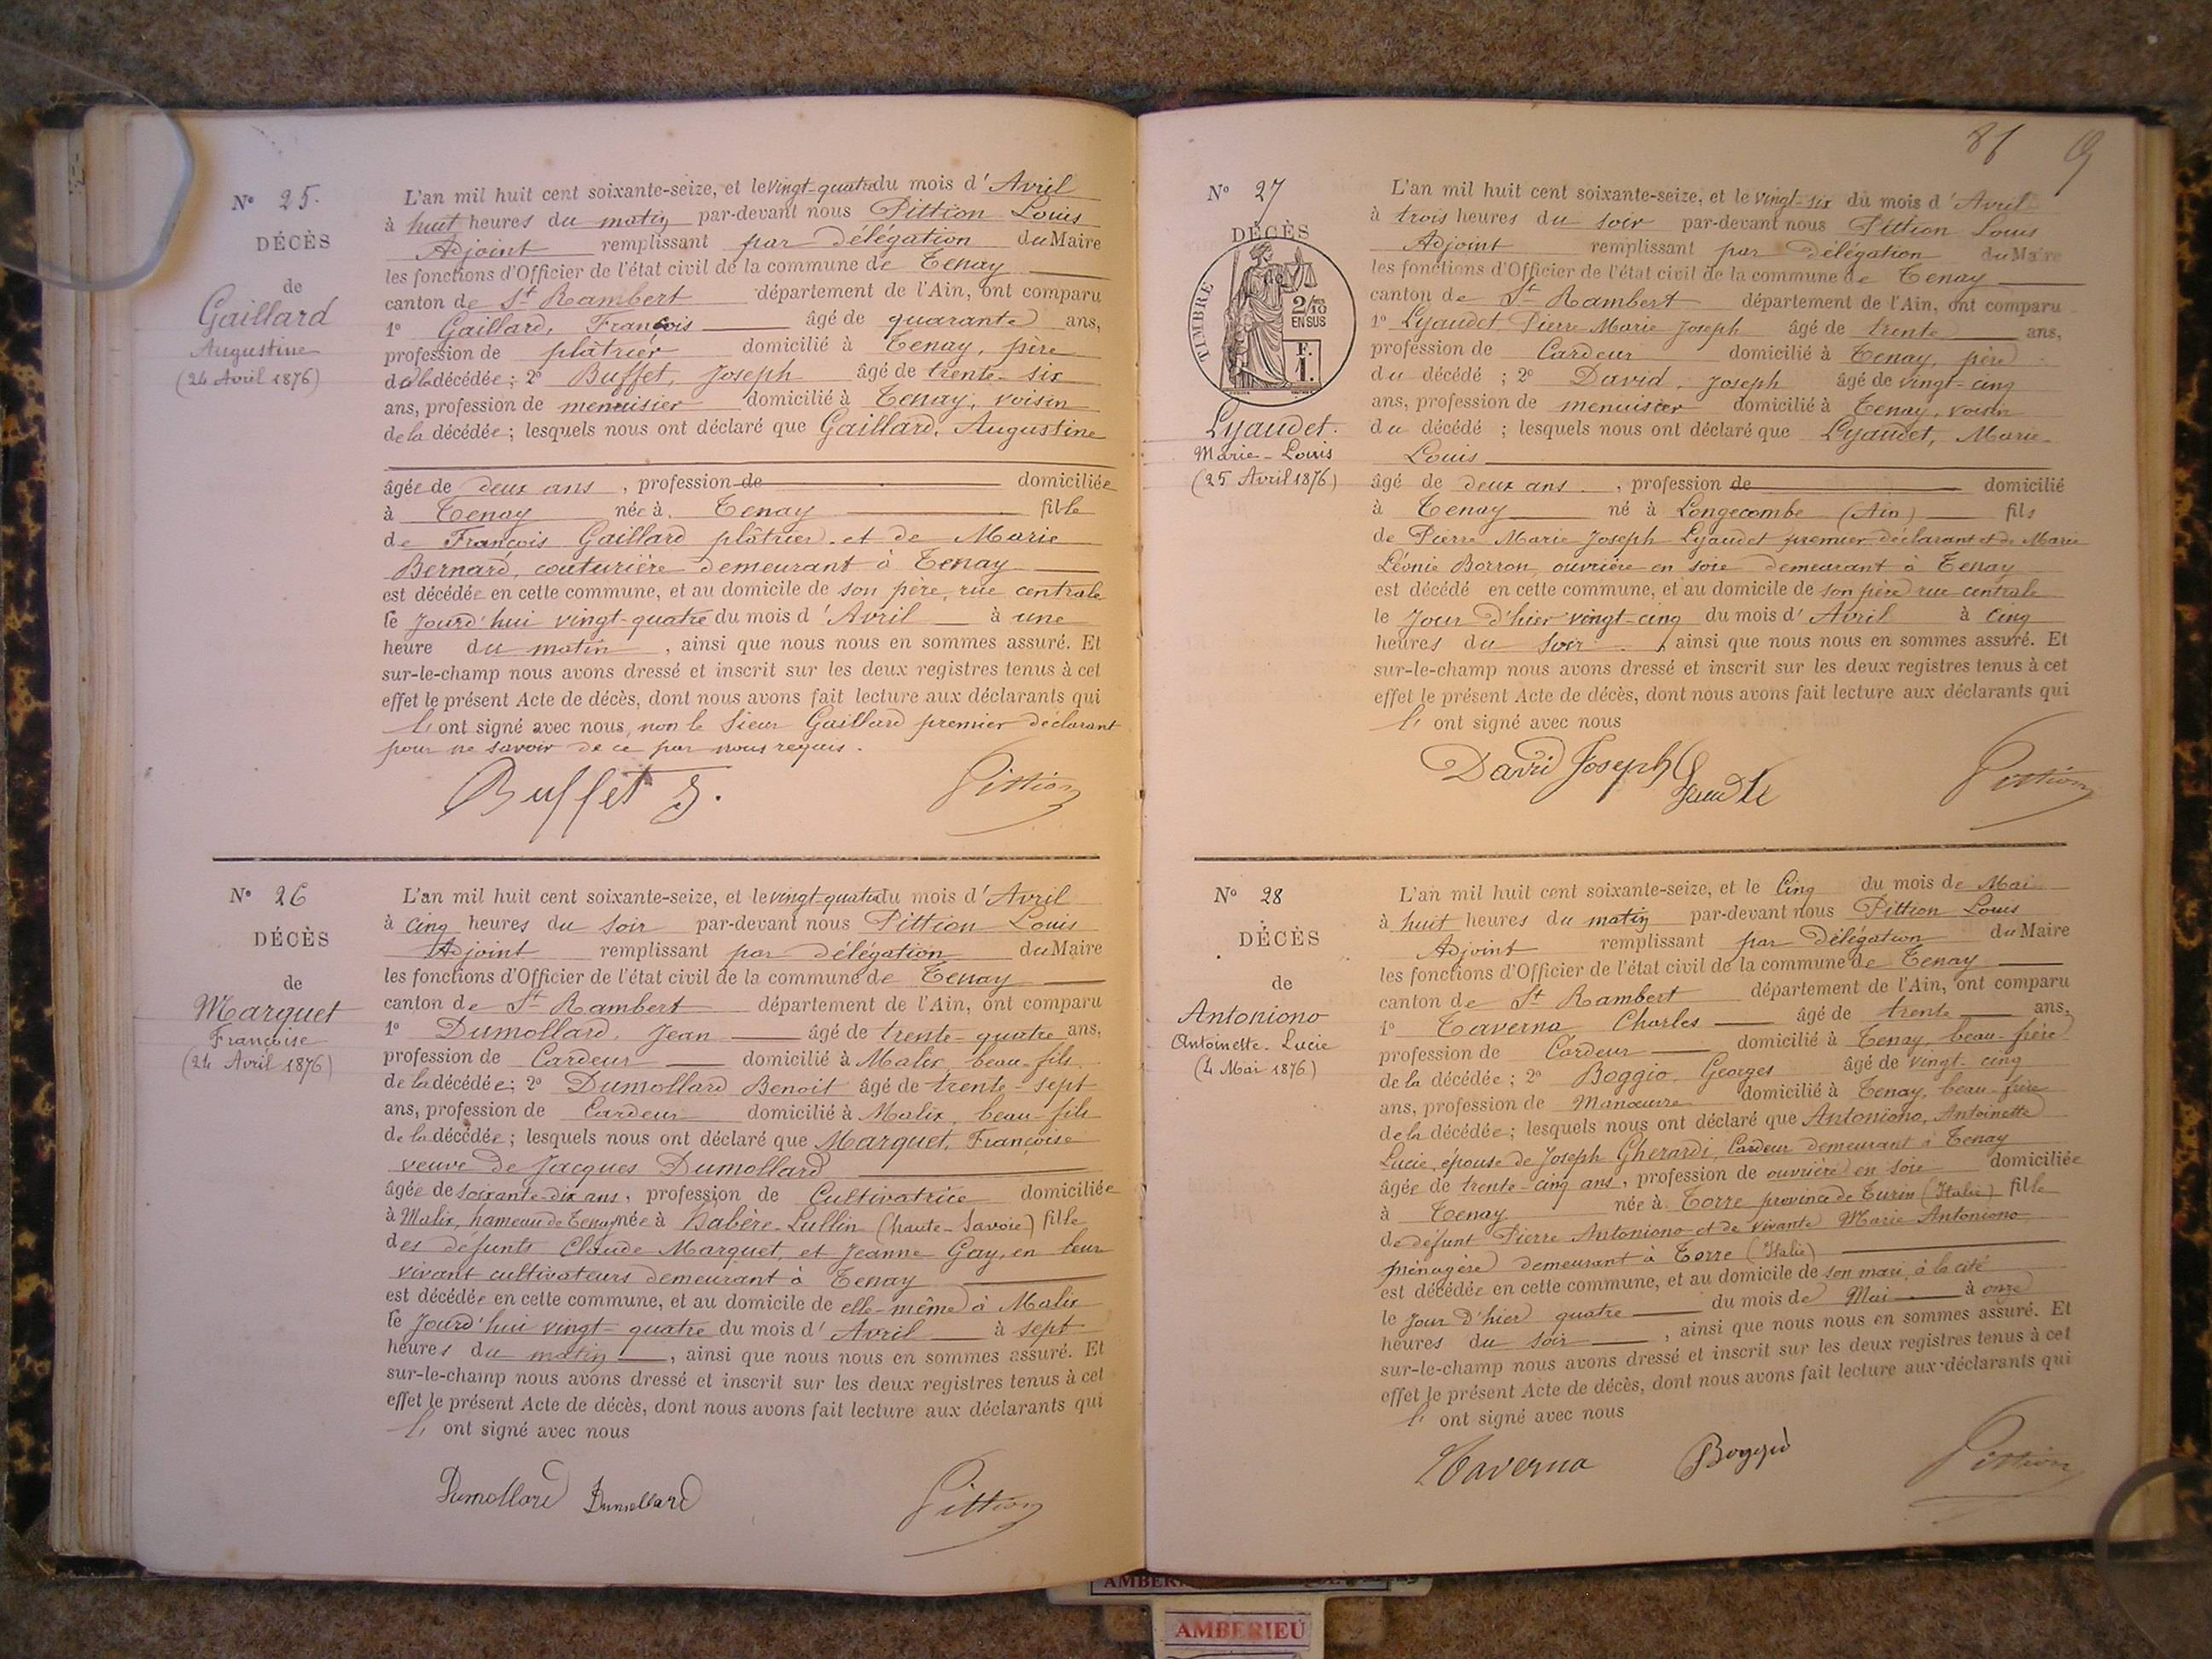 Nº 25.
DÉCÈS
de
Gaillard
Augustine
(24 Avril 1876)
L'an mil huit cent soixante-seize, et le vingt-quatre du mois d'Avril
à huit heures du matin par-devant nous Pittion Louis
Adjoint remplissant par délégation du Maire
les fonctions d'Officier de l'état civil de la commune de Tenay
canton de St Rambert département de l'Ain, ont comparu
1º Gaillard, François âgé de quarante ans,
profession de plâtrier domicilié à Tenay, père
de la décédée ; 2º Buffet, Joseph âgé de trente-six
ans, profession de menuisier domicilié à Tenay, voisin
de la décédée ; lesquels nous ont déclaré que Gaillard, Augustine
âgée de deux ans, profession de domiciliée
à Tenay née à Tenay fille
de François Gaillard plâtrier et de Marie
Bernard, couturière demeurant à Tenay
est décédée en cette commune, et au domicile de son père, rue centrale
le Jourd'hui vingt-quatre du mois d'Avril à une
heure du matin, ainsi que nous nous en sommes assuré. Et
sur-le-champ nous avons dressé et inscrit sur les deux registres tenus à cet
effet le présent Acte de décès, dont nous avons fait lecture aux déclarants qui
l'ont signé avec nous, non le Sieur Gaillard premier déclarant
pour ne savoir de ce par nous requis.
Buffet J. Pittion
Nº 26
DÉCÈS
de
Marquet
Françoise
(24 Avril 1876)
L'an mil huit cent soixante-seize, et le vingt-quatre du mois d'Avril
à cinq heures du soir par-devant nous Pittion Louis
Adjoint remplissant par délégation du Maire
les fonctions d'Officier de l'état civil de la commune de Tenay
canton de St Rambert département de l'Ain, ont comparu
1º Dumollard, Jean âgé de trente-quatre ans,
profession de Cardeur domicilié à Malix, beau-fils
de la décédée ; 2º Dumollard Benoit âgé de trente-sept
ans, profession de Cardeur domicilié à Malix, beau-fils
de la décédée ; lesquels nous ont déclaré que Marquet, Françoise
veuve de Jacques Dumollard
âgée de soixante-dix ans, profession de Cultivatrice domiciliée
à Malix, hameau de Tenay née à Habère-Lullin (haute-Savoie) fille
des défunts Claude Marquet, et Jeanne Gay, en leur
vivant cultivateurs demeurant à Tenay
est décédée en cette commune, et au domicile de elle-même à Malix
le Jourd'hui vingt-quatre du mois d'Avril à sept
heures du matin, ainsi que nous nous en sommes assuré. Et
sur-le-champ nous avons dressé et inscrit sur les deux registres tenus à cet
effet le présent Acte de décès, dont nous avons fait lecture aux déclarants qui
l'ont signé avec nous
Dumollard Dumollard Pittion
Nº 27
DÉCÈS
TIMBRE
2/10
EN SUS
F.
1.
Lyaudet.
Marie-Louis
(25 Avril 1876)
L'an mil huit cent soixante-seize, et le vingt-six du mois d'Avril
à trois heures du soir par-devant nous Pittion Louis
Adjoint remplissant par délégation du Maire
les fonctions d'Officier de l'état civil de la commune de Tenay
canton de St Rambert département de l'Ain, ont comparu
1º Lyaudet Pierre Marie Joseph âgé de trente ans,
profession de Cardeur domicilié à Tenay, père
du décédé ; 2º David, Joseph âgé de vingt-cinq
ans, profession de menuisier domicilié à Tenay, voisin
du décédé ; lesquels nous ont déclaré que Lyaudet, Marie-
Louis
âgé de deux ans, profession de domicilié
à Tenay né à Longecombe (Ain) fils
de Pierre Marie Joseph Lyaudet premier déclarant et de Marie
Léonie Borron, ouvrière en soie demeurant à Tenay
est décédé en cette commune, et au domicile de son père rue centrale
le Jour d'hier vingt-cinq du mois d'Avril à cinq
heures du soir, ainsi que nous nous en sommes assuré. Et
sur-le-champ nous avons dressé et inscrit sur les deux registres tenus à cet
effet le présent Acte de décès, dont nous avons fait lecture aux déclarants qui
l'ont signé avec nous
David Joseph Pittion
Nº 28
DÉCÈS
de
Antoniono
Antoinette-Lucie
(4 Mai 1876)
L'an mil huit cent soixante-seize, et le Cinq du mois de Mai
à huit heures du matin par-devant nous Pittion Louis
Adjoint remplissant par délégation du Maire
les fonctions d'Officier de l'état civil de la commune de Tenay
canton de St Rambert département de l'Ain, ont comparu
1º Taverna Charles âgé de trente ans,
profession de Cardeur domicilié à Tenay, beau-frère
de la décédée ; 2º Boggio, Georges âgé de vingt-cinq
ans, profession de Manœuvre domicilié à Tenay, beau-frère
de la décédée ; lesquels nous ont déclaré que Antoniono, Antoinette
Lucie, épouse de Joseph Gherardi, Cardeur demeurant à Tenay
âgée de trente-cinq ans, profession de ouvrière en soie domiciliée
à Tenay née à Torre province de Turin (Italie) fille
de défunt Pierre Antoniono et de vivante Marie Antoniono
ménagère demeurant à Torre (Italie)
est décédée en cette commune, et au domicile de son mari, à la cité
le Jour d'hier quatre du mois de Mai à onze
heures du soir, ainsi que nous nous en sommes assuré. Et
sur-le-champ nous avons dressé et inscrit sur les deux registres tenus à cet
effet le présent Acte de décès, dont nous avons fait lecture aux déclarants qui
l'ont signé avec nous
Taverna Boggio Pittion
AMBERIEU